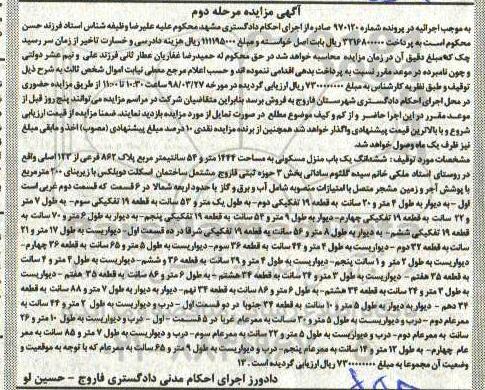 آگهی مزایده مرحله دوم
به موجب اجرائیه در پرونده شماره ۹۷۰۱۲۰ صادره از اجرای احکام دادگستری مشهد محکوم علیه علیرضا وظیفه شناس استاد فرزند حسن
محکوم است به پرداخت ۳۲۱۶۸۰۰۰۰۰ ریال بابت اصل خواسته و مبلغ ۱۱۱۱۹۵۰۰۰ ریال هزینه دادرسی و خسارت تاخیر از زمان سر رسید
چک که مبلغ دقیق آن در زمان مزایده محاسبه خواهد شد در حق محکوم له حمیدرضا غفاریان عطار ثانی فرزند علی و نیم عشر دولتی و
چون نامبرده در موعد مقرر نسبت به پرداخت بدهی اقدامی ننموده اند و حسب اعلام مرجع معطی نیابت اموال شخص ثالث به شرح ذیل
توقیف و طبق نظریه کارشناس به مبلغ ۷۳۰۰۰۰۰۰۰۰ ریال ارزیابی گردیده در مورخه ۹۸/۰۳/۲۷ ساعت ۱۰:۳۰ تا ۱۱:۰۰ از طریق مزایده حضوری
در محل اجرای احکام دادگستری شهرستان فاروج به فروش برسد بنابراین متقاضیان شرکت در مراسم مزایده می توانند پنج روز قبل از
موعد مقرر در این اجرا حاضر و از کم و کیف موضوع مطلع در صورت تمایل از مورد مزایده بازدید نمایند. ضمنا مزایده از قیمت ارزیابی
شروع و با بالاترین قیمت پیشنهادی واگذار خواهد شد همچنین از برنده مزایده نقدی ۱۰ درصد مبلغ پیشنهادی (مصوب) اخذ و مابقی مبلغ
نیز ظرف یک ماه وصول خواهد شد.
مشخصات مورد توقیف: ششدانگ یک باب منزل مسکونی به مساحت ۱۴۴۴ متر و ۵۴ سانتیمتر مربع پلاک ۸۶۲ فرعی از ۱۲۳ اصلی واقع
در روستای استاد ملکی خانم سیده کلثوم ساداتی بخش ۳ حوزه ثبتی فاروج مشتمل ساختمان اسکلت دوبلکس با زیربنای ۲۰۰ مترمربع
با پوشش آجر و زمین مشجر متصل با امتیازات منصوبه شامل آب و برق و گاز با حدود اربعه شمالا در ۶ قسمت که قسمت دوم غربی است
اول – به دیوار به طول ۴ متر و ۳۰ سانت به قطعه ۱۹ تفکیکی دوم- به طول یک متر و ۵۳ سانت به قطعه ۱۹ تفکیکی سوم- به طول ۷ متر
و ۲۲ سانت به قطعه ۱۹ تفکیکی چهارم- دیوار به طول ۹ متر و ۵۳ سانت به قطعه ۱۹ تفکیکی پنجم – به دیوار به طول ۶ متر و ۷۰ سانت به
قطعه ۱۹ تفکیکی ششم – به دیوار به طول ۸ متر و ۵۶ سانت به قطعه ۱۹ تفکیکی شرقا در ده قسمت اول – دیواریست به طول ۱۷ متر و ۲۱
سانت به قطعه ۳۲ دوم – دیواریست به طول ۴ متر و ۴۴ سانت به قطعه ۳۶ سوم- دیواریست به طول ۵ متر و ۶۵ سانت به قطعه ۳۶ چهارم-
دیواریست به طول ۲ متر و ۱ سانت پنجم – دیواریست به طول ۴ متر و ۲۹ سانت به قطعه ۳۶ و ششم – دیواریست به طول ۴ متر و ۲ سانت
به قطعه ۳۵ هفتم – دیواریست به طول ۳ متر و ۲۴ سانت به قطعه ۳۴ هشتم – به طول ۶ متر و ۸۶ سانت به قطعه ۳۵ هفتم – دیواریست
به طول ۳ متر و ۲۴ سانت به قطعه ۳۴ هشتم – به طول ۶ متر و ۸۶ سانت به قطعه ۳۴ نهم – دیوار به دیوار به طول ۷ متر و ۸۸ سانت به قطعه
۳۴ دهم – دیوار به دیوار به طول ۵ متر و ۱۰ سانت به قطعه ۳۴ جنوبا در دو قسمت اول – درب و دیواریست به طول ۲ متر و ۴۴ سانت به
ممرعام دوم – درب و دیواریست به طول ۵ متر و ۳۰ سانت به ممرعام غربا در ۵ قسمت – اول – درب و دیواریست به طول ۱۰ متر و ۲۶
سانت به ممرعام دوم – درب و دیواریست به طول ۵ متر و ۲۲ سانت به ممرعام سوم – درب و دیواریست به طول ۷ متر و ۸۵ سانت به ممر
عام چهارم – به طول ۱۲ متر و ۱۴ سانت به ممرعام پنجم – درب و دیواریست به طول ۹ متر و ۶۵ سانت به ممرعام که با توجه به موقعیت و
وضعیت آن مجموعا به مبلغ ۷۳۰۰۰۰۰۰۰۰ ریال ارزیابی گردیده است. ۱۲
دادورز اجرای احکام مدنی دادگستری فاروج – حسین لو